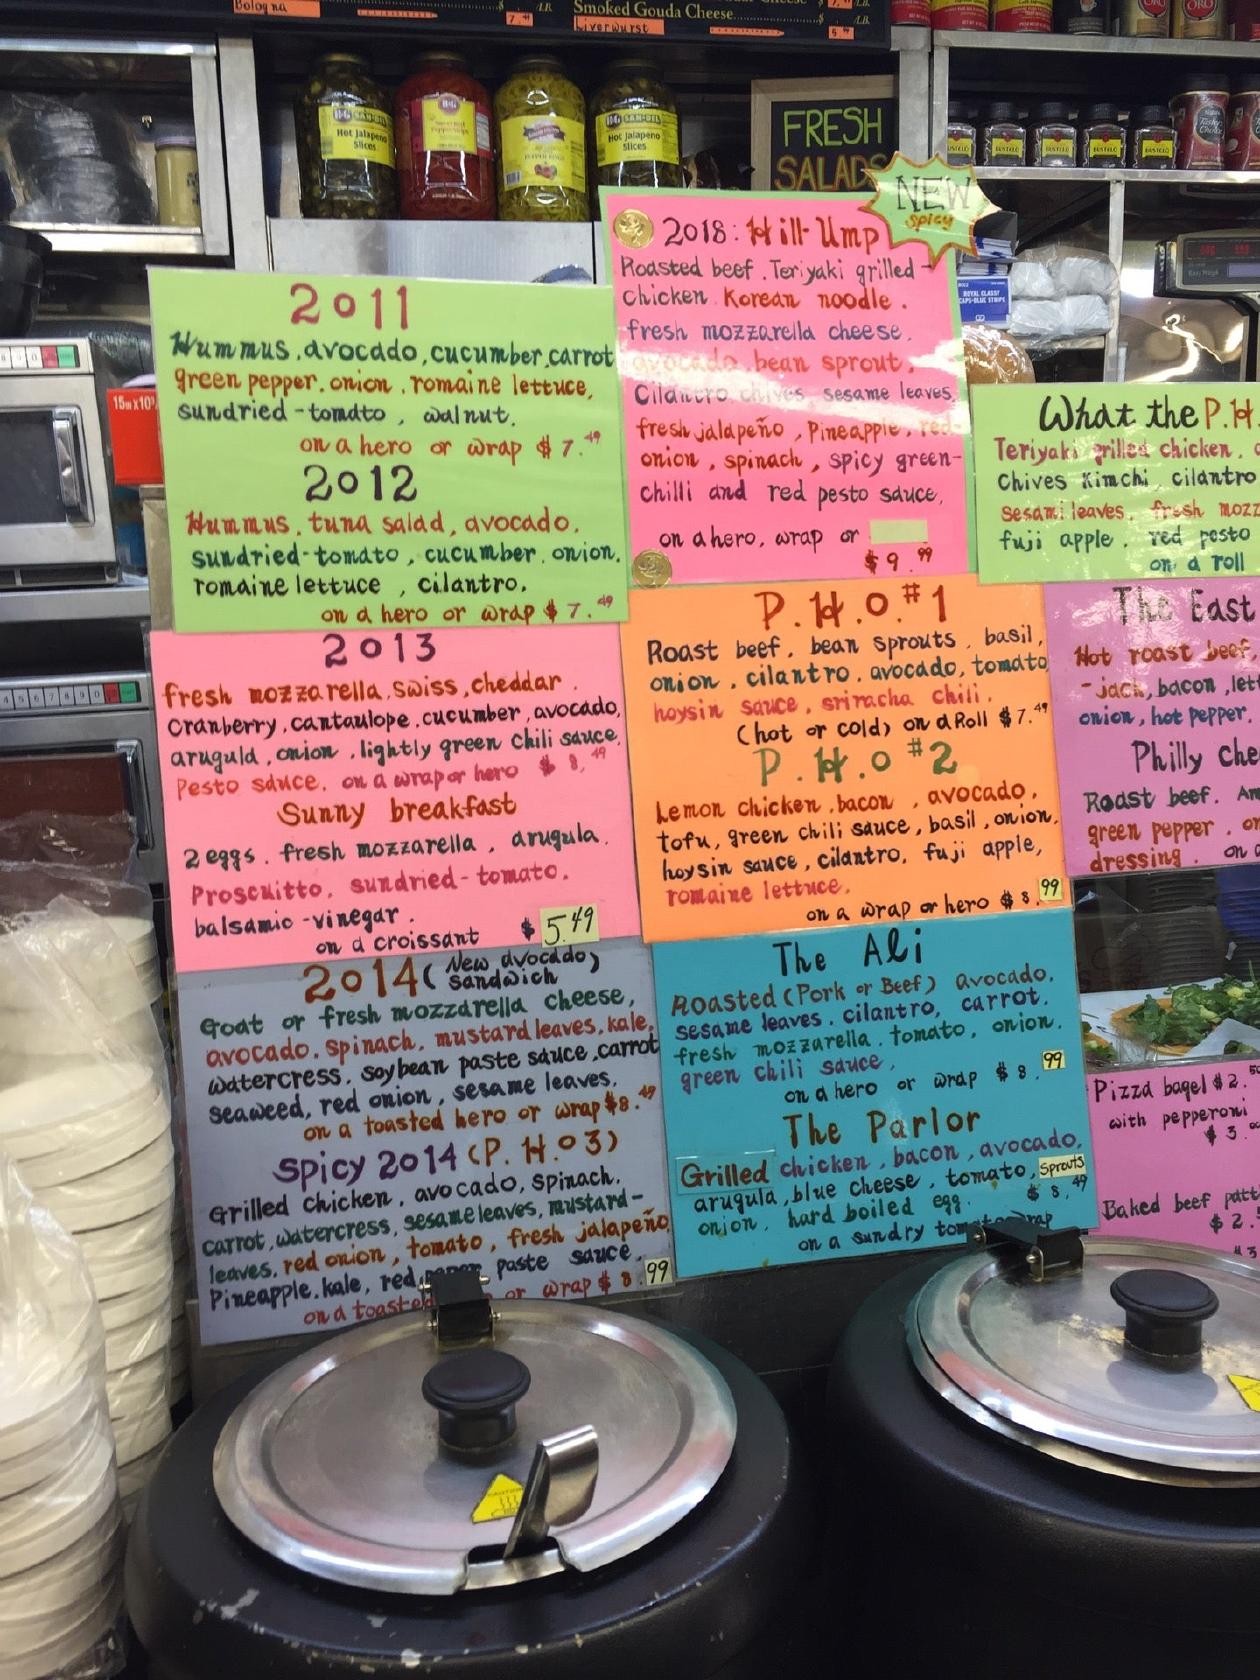 Bologna
$ 7.49 /LB.
Smoked Gouda Cheese
Liverwurst
/LB.
ORO
ORO
H&G SAN-DEL
Hot Jalapeno
Slices
H&G
PEPPER RINGS
H&G SAN-DEL
Hot Jalapeno
Slices
FRESH
SALADS
BUSTELO
BUSTELO
BUSTELO
Taster's
Choice
NEW
spicy
ROYAL CLASSY
CAPS-BLUE STRIPE
15m x10
2011
Hummus, avocado, cucumber, carrot
green pepper, onion, romaine lettuce,
sundried-tomato, walnut.
on a hero or wrap $ 7.49
2012
Hummus, tuna salad, avocado,
sundried-tomato, cucumber, onion,
romaine lettuce, cilantro.
on a hero or wrap $ 7.49
2013
fresh mozzarella, swiss, cheddar.
Cranberry, cantaulope, cucumber, avocado,
arugula, onion, lightly green chili sauce,
Pesto sauce, on a wrap or hero $ 8.49
Sunny breakfast
2 eggs, fresh mozzarella, arugula,
Proscuitto, sundried-tomato,
balsamic-vinegar.
on a croissant $ 5.49
2014 (New avocado sandwich)
Goat or fresh mozzarella cheese,
avocado, spinach, mustard leaves, kale,
watercress, soybean paste sauce, carrot
seaweed, red onion, sesame leaves,
on a toasted hero or wrap $8.49
Spicy 2014 (P.H.O 3)
Grilled chicken, avocado, spinach,
carrot, watercress, sesame leaves, mustard-
leaves, red onion, tomato, fresh jalapeño,
Pineapple, kale, red paste sauce,
on a toasted or wrap $ 8.99
2018: Hill-Ump
Roasted beef, Teriyaki grilled-
chicken, Korean noodle,
fresh mozzarella cheese,
avocado, bean sprout,
Cilantro, chives, sesame leaves,
fresh jalapeño, Pineapple, red-
onion, spinach, spicy green-
chilli and red pesto sauce,
on a hero, wrap or
$ 9.99
P.H.O #1
Roast beef, bean sprouts, basil,
onion, cilantro, avocado, tomato
hoysin sauce, sriracha chili,
(hot or cold) on a Roll $7.49
P.H.O #2
Lemon chicken, bacon, avocado,
tofu, green chili sauce, basil, onion,
hoysin sauce, cilantro, fuji apple,
romaine lettuce.
on a wrap or hero $ 8.99
The Ali
Roasted (Pork or Beef) avocado,
sesame leaves, cilantro, carrot,
fresh mozzarella, tomato, onion,
green chili sauce,
on a hero or wrap $ 8.99
The Parlor
Grilled chicken, bacon, avocado,
arugula, blue cheese, tomato, Sprouts
onion, hard boiled egg. $ 8.49
on a sundry tomato wrap
What the P.H.
Teriyaki grilled chicken,
Chives Kimchi, cilantro
sesami leaves, fresh mozz
fuji apple, red pesto
on a roll
The East
Hot roast beef,
-jack, bacon, lett
onion, hot pepper.
Philly Che
Roast beef. Am
green pepper, on
dressing. on a
Pizza bagel $2.50
with pepperoni
$ 3.00
Baked beef patt
$ 2.5
CAUTION